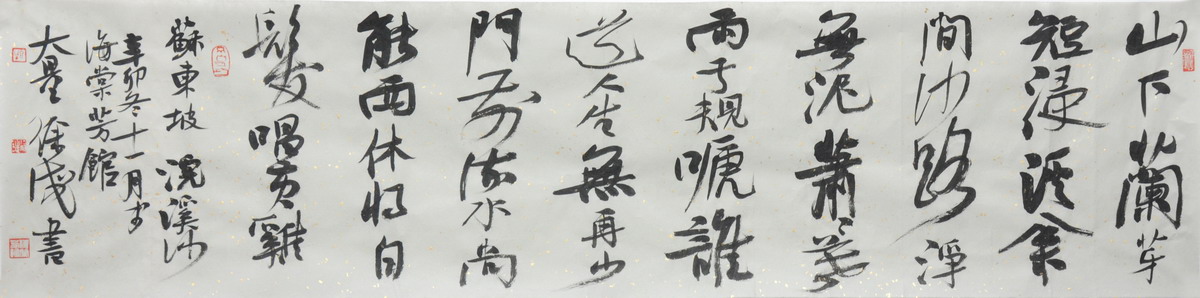 山下蘭芽
短浸溪枀
間沙路淨
無泥蕭〻暮
雨子規嗁誰
道人生無再少
門前流水尚
能西休將白
髮唱黃雞
蘇東坡 浣溪沙
辛卯冬十一月于
海棠芳館
大 徐 書